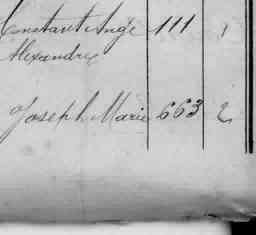 Constant Ange 111 1
Alexandre
Joseph Marie 663 2